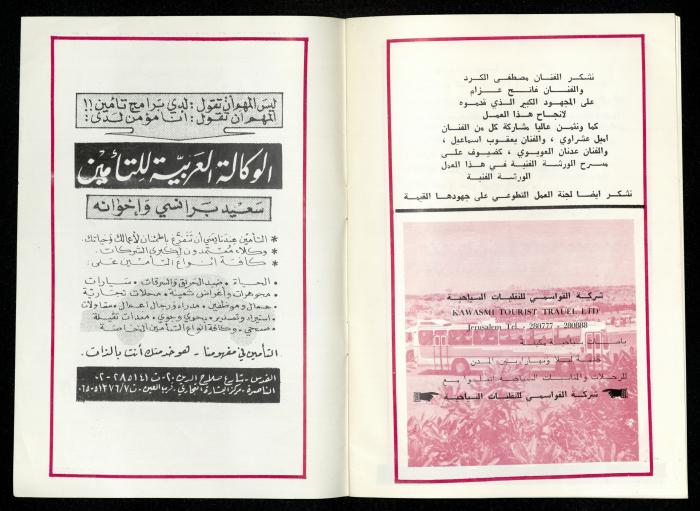 نشكر الفنان مصطفى الكرد
والفنان فاتح عزام
على المجهود الكبير الذي قدموه
لانجاح هذا العمل
كما ونثمن عاليا مشاركة كل من الفنان
اميل عشراوي ، والفنان يعقوب اسماعيل ،
والفنان عدنان العويوي ، كضيوف على
مسرح الورشة الفنية في هذا العمل
الورشة الفنية
نشكر ايضا لجنة العمل التطوعي على جهودها القيمة
شركة القواسمي للنقليات السياحية
KAWASMI TOURIST TRAUEL LTD
Jerusalem Tel. 280777 - 280888
باصات سياحية مكيفة
خدمة ليلا ونهارا بين المدن
للرحلات والمناسبات السياحية اتصلوا مع
شركة القواسمي للنقليات السياحية
ليس المهم أن تقول : لدي برامج تأمين !!
المهم أن تقول : أنا مؤمن لدى :
الوكالة العربية للتأمين
سعيد برانسي وإخوانه
* التأمين عندنا يعني أن تتفرغ باطمئنان لأعمالك وحياتك.
* وكلاء معتمدون لكبرى الشركات.
* كافة أنواع التأمين على :
الحياة • ضد الحريق والسرقات • سيارات
مجوهرات وأغراض ثمينة • محلات تجارية
عمال وموظفين • مدراء ورجال اعمال • مقاولات
استيراد وتصدير • بحري وجوي • معدات ثقيلة
صحي • وكافة أنواع التأمين الخاصة
التأمين في مفهومنا - هو خدمتك أنت بالذات.
القدس - شارع صلاح الدين ٢٠ - ت ٢٨٥١٤١-٠٢
الناصرة - مركز البشارة التجاري، قرب العين - ت ٥١٣٧٦/٧-٠٦٥